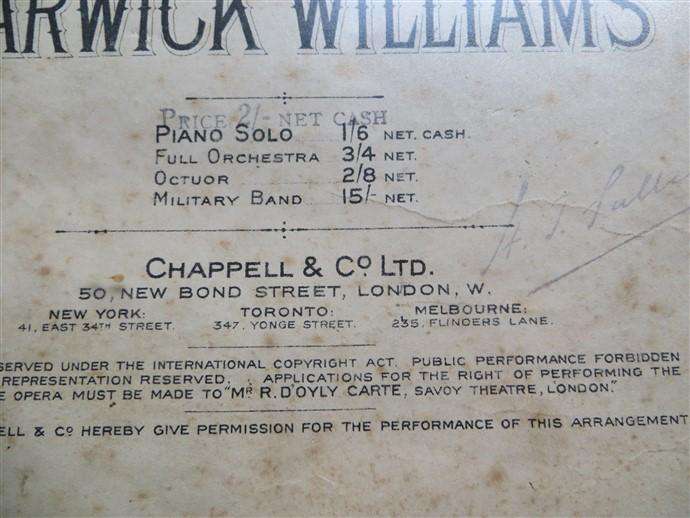 ARWICK WILLIAMS
PRICE 2/- NET CASH
PIANO SOLO 1/6 NET. CASH.
FULL ORCHESTRA 3/4 NET.
OCTUOR 2/8 NET.
MILITARY BAND 15/- NET.
CHAPPELL & Co LTD.
50, NEW BOND STREET, LONDON, W.
NEW YORK: TORONTO: MELBOURNE:
41, EAST 34TH STREET. 347, YONGE STREET. 235, FLINDERS LANE.
SERVED UNDER THE INTERNATIONAL COPYRIGHT ACT. PUBLIC PERFORMANCE FORBIDDEN
REPRESENTATION RESERVED. APPLICATIONS FOR THE RIGHT OF PERFORMING THE
E OPERA MUST BE MADE TO "MR R. D'OYLY CARTE, SAVOY THEATRE, LONDON."
ELL & Co HEREBY GIVE PERMISSION FOR THE PERFORMANCE OF THIS ARRANGEMENT